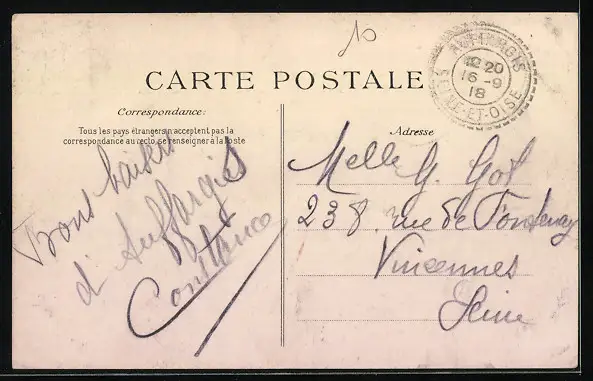 10
AUFFARGIS
12 20
16-9
18
SEINE-ET-OISE
CARTE POSTALE
Correspondance:
Tous les pays étrangers n'acceptent pas la
correspondance au recto, se renseigner à la Poste
Adresse
Bons baisers
d'Auffargis
Constance
Melle G. Got
238, rue de Fontenay
Vincennes
Seine